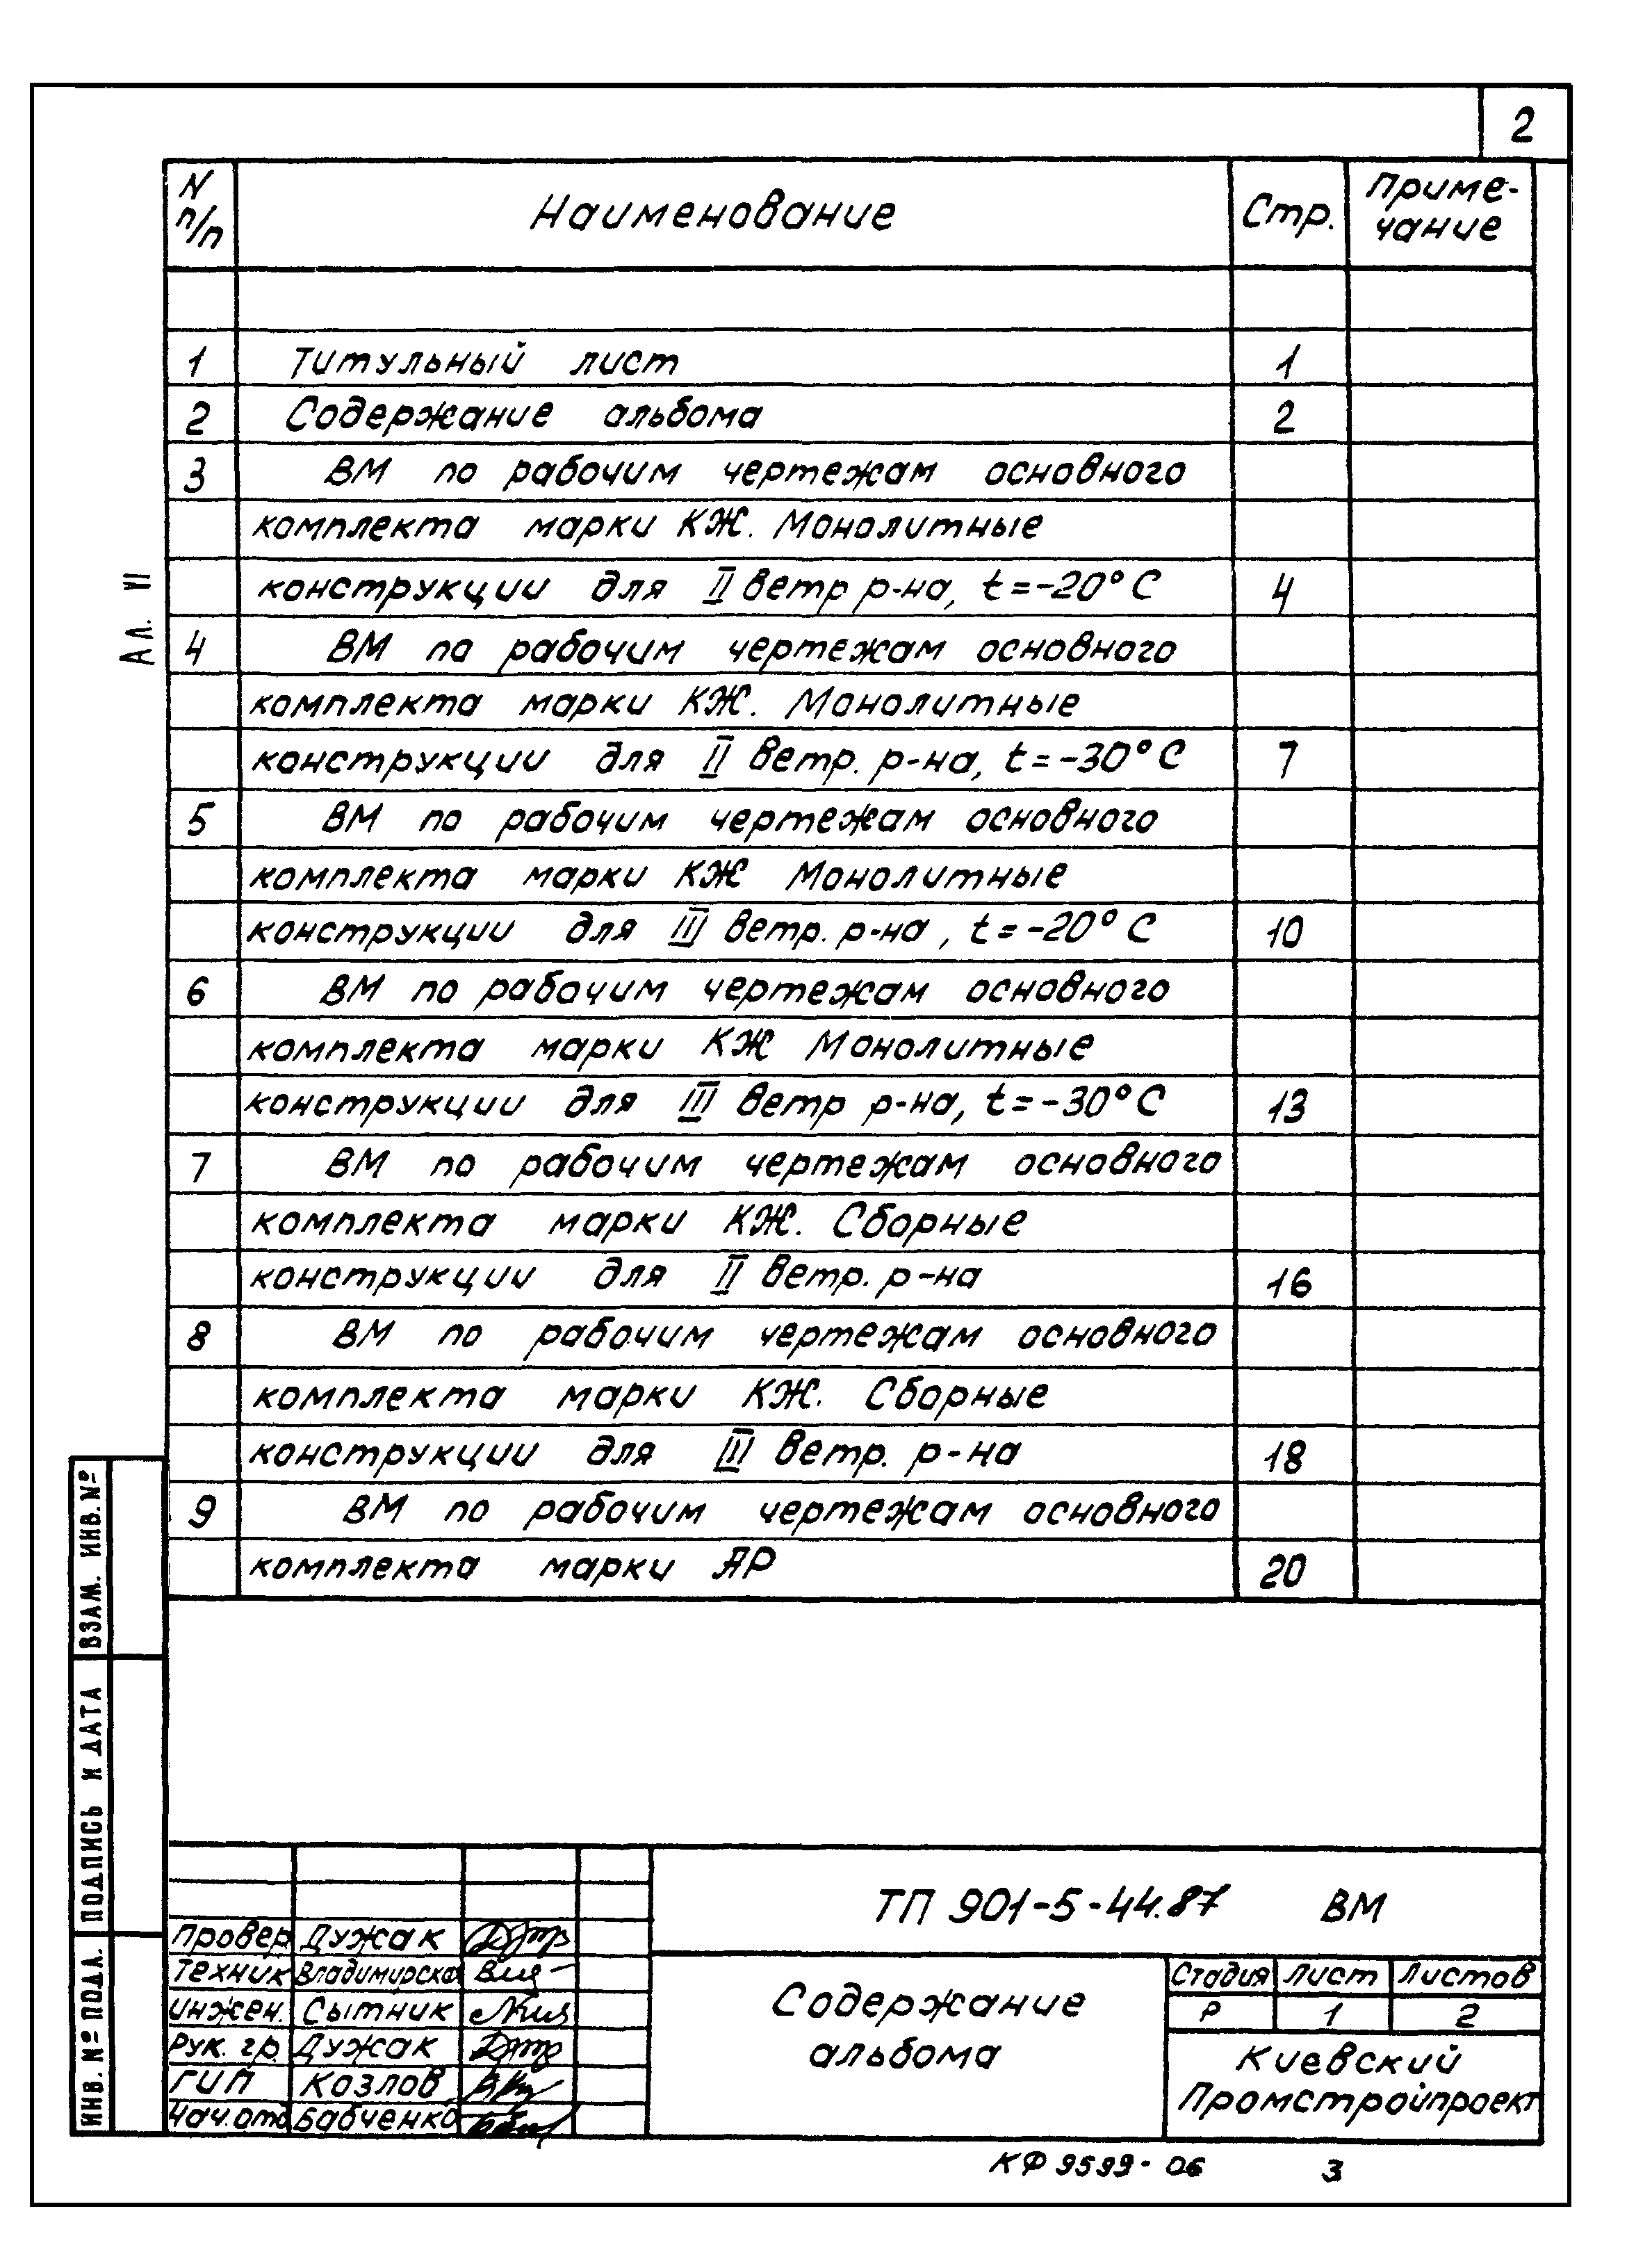 2
N п/п Наименование Стр. Приме-
чание
1 Титульный лист 1
2 Содержание альбома 2
3 ВМ по рабочим чертежам основного
комплекта марки КЖ. Монолитные
конструкции для II ветр р-на, t=-20°C 4
4 ВМ по рабочим чертежам основного
комплекта марки КЖ. Монолитные
конструкции для II ветр. р-на, t=-30°C 7
5 ВМ по рабочим чертежам основного
комплекта марки КЖ Монолитные
конструкции для III ветр. р-на, t=-20°C 10
6 ВМ по рабочим чертежам основного
комплекта марки КЖ Монолитные
конструкции для III ветр р-на, t=-30°C 13
7 ВМ по рабочим чертежам основного
комплекта марки КЖ. Сборные
конструкции для II ветр. р-на 16
8 ВМ по рабочим чертежам основного
комплекта марки КЖ. Сборные
конструкции для III ветр. р-на 18
9 ВМ по рабочим чертежам основного
комплекта марки АР 20
Ал. VI
ВЗАМ. ИНВ. №
ПОДПИСЬ И ДАТА
ИНВ. № ПОДЛ.
Провер Дужак
Техник Владимирская
Инжен. Сытник
Рук. гр. Дужак
ГИП Козлов
Нач. отд Бабченко
ТП 901-5-44.87 ВМ
Содержание
альбома
Стадия Лист Листов
Р 1 2
Киевский
Промстройпроект
КФ 9599-06 3